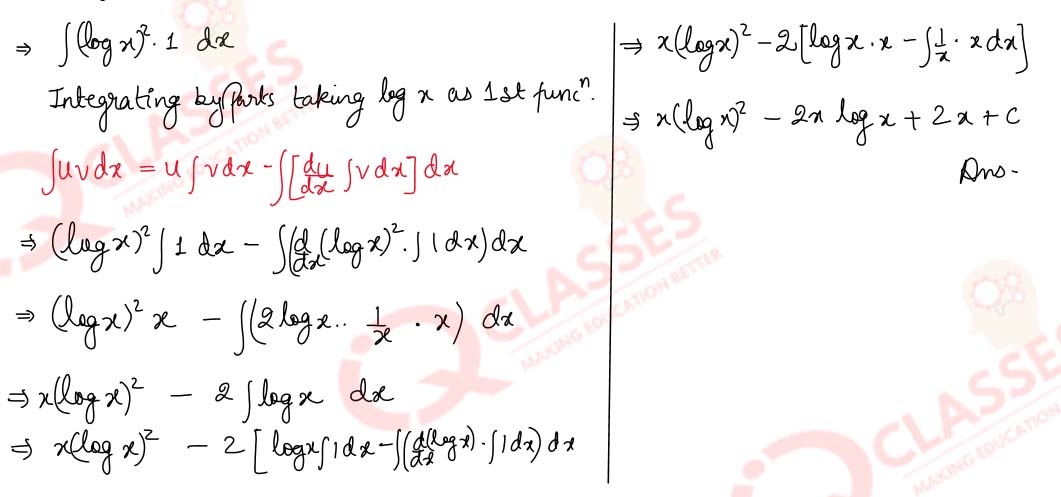 ⇒ ∫(log x)². 1 dx
Integrating by Parts taking log x as 1st funcⁿ.
∫uvdx = u∫vdx - ∫[du/dx ∫vdx] dx
⇒ (log x)² ∫1 dx - ∫(d/dx (log x)². ∫1 dx) dx
⇒ (log x)² x - ∫(2 log x.. 1/x . x) dx
⇒ x(log x)² - 2 ∫log x dx
⇒ x(log x)² - 2 [log x∫1 dx - ∫(d/dx (log x) . ∫1 dx) dx
⇒ x(log x)² - 2[log x . x - ∫1/x . x dx]
⇒ x(log x)² - 2x log x + 2x + C
Ans.
CLASSES
MAKING EDUCATION BETTER
CLASSES
MAKING EDUCATION BETTER
CLASSES
MAKING EDUCATION BETTER